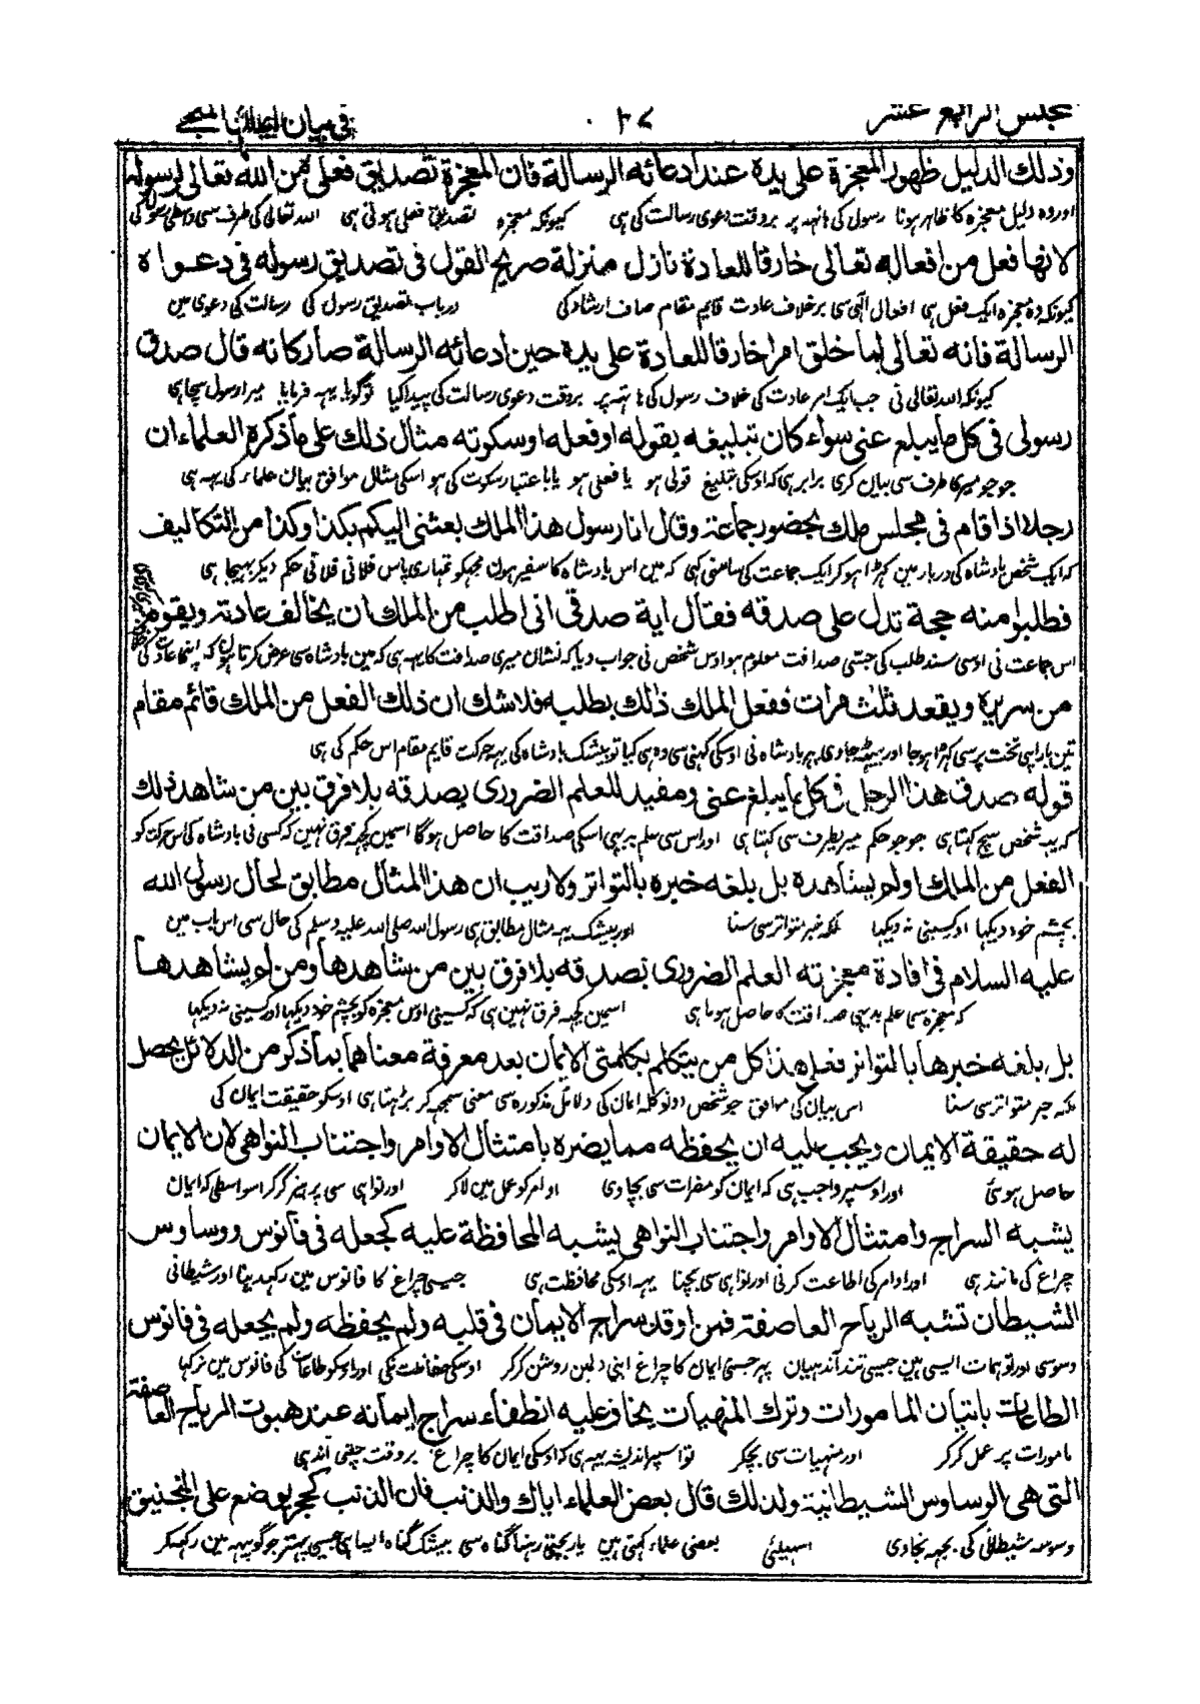 مجلس الرابع عشر
في بيان
وذلك الدليل ظهور المعجزة على يده عند ادعائه الرسالة فان المعجزة تصديق فعلى من الله تعالى لرسوله
اور وہ دلیل معجزہ کا ظاہر ہونا رسول کی ہاتہہ پر بروقت دعوی رسالت کی ہی کیونکہ معجزہ تصدیق فعلی ہوتی ہی اللہ تعالی کی طرف سی واسطی رسول کی
لانها فعل من افعاله تعالى خارقا للعادة نازل منزلة صريح القول فى تصديق رسوله فى دعواه
کیونکہ وہ معجزہ ایک فعل ہی افعال الہی سی برخلاف عادت قایم مقام صاف ارشاد کی درباب تصدیق رسول کی رسالت کی دعوی مین
الرسالة فانه تعالى لما خلق امرا خارقا للعادة على يده حين ادعائه الرسالة صار كانه قال صدق
کیونکہ اللہ تعالی نی جب ایک امر عادت کی خلاف رسول کی ہاتہہ پر بروقت دعوی رسالت کی پیدا کیا تو گویا یہہ فرمایا میرا رسول سچا ہی
رسولى فى كل ما يبلغ عنى سواء كان تبليغه بقوله او فعله او سكوته مثال ذلك على ما ذكره العلماء ان
جو جو میری طرف سی بیان کری برابر ہی کہ اوسکی تبلیغ قولی ہو یا فعلی ہو یا باعتبار سکوت کی ہو اسکی مثال موافق بیان علماء کی یہہ ہی
رجلا اذا قام فى مجلس ملك بحضور جماعة وقال انا رسول هذا الملك بعثنى اليكم بكذا وكذا من التكاليف
کہ ایک شخص بادشاہ کی دربار مین کہڑا ہو کر ایک جماعت کی سامنی کہی کہ مین اس بادشاہ کا سفیر ہون مجہکو تمہاری پاس فلانی فلانی حکم دیکر بہیجا ہی
فطلبوا منه حجة تدل على صدقه فقال اية صدقى انى اطلب من الملك ان يخالف عادته ويقوم
اس جماعت نی اوسی سند طلب کی جسی صداقت معلوم ہو اوس شخص نی جواب دیا کہ نشان میری صداقت کا یہہ ہی کہ مین بادشاہ سی عرض کرتا ہون کہ اپنی عادت کی
من سريره ويقعد ثلث مرات ففعل الملك ذلك بطلبه فلا شك ان ذلك الفعل من الملك قائم مقام
تین بار اپی تخت پر سی کہڑا ہو جا اور بیٹہہ جاوی پہر بادشاہ نی اوسکی کہنی سی وہ ہی کیا تو بیشک بادشاہ کی یہہ حرکت قایم مقام اس حکم کی ہی
قوله صدق هذا الرجل فى كل ما يبلغ عنى ومفيد للعلم الضرورى بصدقه بلا فرق بين من شاهد ذلك
کہ یہہ شخص سچ کہتا ہی جو جو حکم میری طرف سی کہتا ہی اور اس سی علم بدیہی اسکی صداقت کا حاصل ہوگا اسمین کچہہ فرق نہین کہ کسی نی بادشاہ کی اس حرکت کو
الفعل من الملك او لم يشاهده بل بلغه خبره بالتواتر ولا ريب ان هذا المثال مطابق لحال رسول الله
بچشم خود دیکہا اور کسینی نہ دیکہا بلکہ خبر متواتر سی سنا اور بیشک یہہ مثال مطابق ہی رسول اللہ صلی اللہ علیہ وسلم کی حال سی اس باب مین
عليه السلام فى افادة معجزته العلم الضرورى بصدقه بلا فرق بين من شاهدها ومن لم يشاهدها
کہ معجزہ سی علم بدیہی صداقت کا حاصل ہوتا ہی اسمین کچہہ فرق نہین ہی کہ کسینی اوس معجزہ کو بچشم خود دیکہا اور کسینی نہ دیکہا
بل بلغه خبرها بالتواتر فعلى هذا كل من يتكلم بكلمتى الايمان بعد معرفة معناهما بما ذكر من الدلائل يحصل
بلکہ خبر متواتر سی سنا اس بیان کی موافق جو شخص دونو کلمہ ایمان کی دلائل مذکورہ سی معنی سمجہہ کر پڑہتا ہی اوسکو حقیقت ایمان کی
له حقيقة الايمان ويجب عليه ان يحفظه مما يضره بامتثال الاوامر واجتناب النواهى لان الايمان
حاصل ہوئی اور اوسپر واجب ہی کہ ایمان کو مضرات سی بچاوی اوامر کو عمل مین لاکر اور نواہی سی پرہیز کرکر اسواسطی کہ ایمان
يشبه السراج وامتثال الاوامر واجتناب النواهى يشبه المحافظة عليه كجعله فى فانوس ووساوس
چراغ کی مانند ہی اور اوامر کی اطاعت کرنی اور نواہی سی بچنا یہہ اوسکی محافظت ہی جیسی چراغ کا فانوس مین رکہدینا اور شیطانی
الشيطان تشبه الرياح العاصفة فمن اوقد سراج الايمان فى قلبه ولم يحفظه ولم يجعله فى فانوس
وسوسی اور توہمات ایسی ہین جیسی تند آندہیان پہر جسنی ایمان کا چراغ اپنی دلمین روشن کرکر اوسکی حفاظت نکی اور اوسکو طاعات کی فانوس مین نرکہا
الطاعات باتيان المامورات وترك المنهيات يخاف عليه انطفاء سراج ايمانه عند هبوب الرياح العاصفة
مامورات پر عمل کرکر اور منہیات سی بچکر تو اسپر اندیشہ یہہ ہی کہ اوسکی ایمان کا چراغ بروقت چلنی آندہی
التى هى الوساوس الشيطانية ولذلك قال بعض العلماء اياك والذنب فان الذنب كحجر يوضع على المنجنيق
وسوسہ شیطانی کی بجہہ نجاوی اسیلئی بعضی علماء کہتی ہین یار بچتی رہنا گناہ سی بیشک گناہ ایسا ہی جیسی پتہر جو گوپہہ مین رکہکر